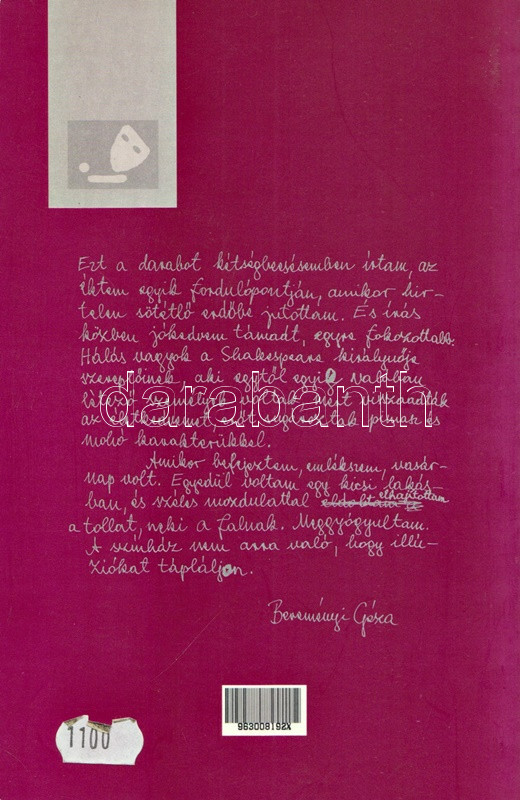 Ezt a darabot kétségbeesésemben írtam, az
életem egyik fordulópontján, amikor hir-
telen sötétlő erdőbe jutottam. És írás
közben jókedvem támadt, egyre fokozottabb.
Hálás vagyok a Shakespeare királynője
szereplőinek, aki egytől egyig valóban
létező személyek voltak, mert visszaadták
az életkedvemet,
nohó karakterükkel.
Amikor befejeztem, emlékszem, vasár-
nap volt. Egyedül voltam egy kicsi lakás-
ban, és széles mozdulattal eldobtam elhajítottam
a tollat, neki a falnak. Meggyógyultam.
A színház nem arra való, hogy illú-
ziókat tápláljon.
Bereményi Géza
darabanth
963008192X
1100